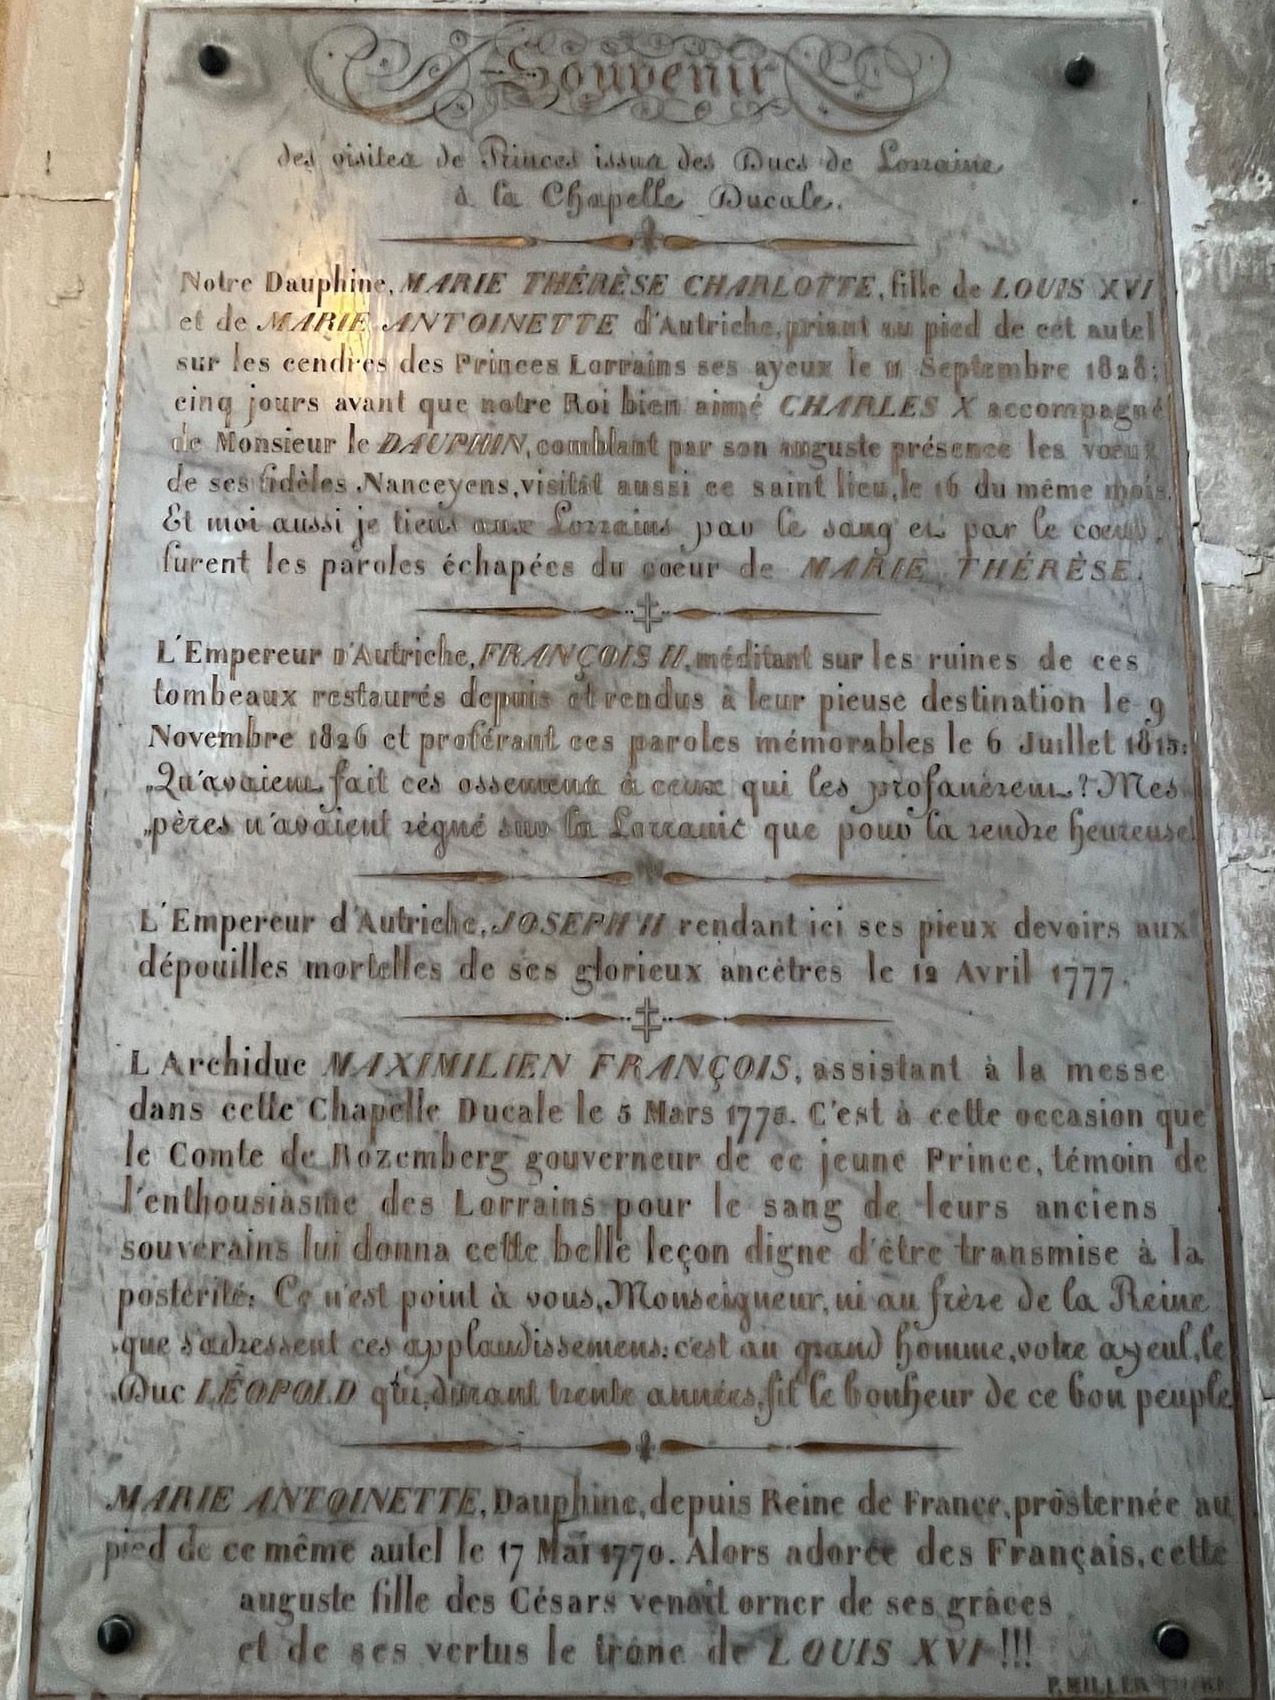 Souvenir
des visites de Princes issus des Ducs de Lorraine
à la Chapelle Ducale.
Notre Dauphine, MARIE THÉRÈSE CHARLOTTE, fille de LOUIS XVI
et de MARIE ANTOINETTE d'Autriche, priant au pied de cet autel
sur les cendres des Princes Lorrains ses ayeux le 11 Septembre 1828;
cinq jours avant que notre Roi bien aimé CHARLES X accompagné
de Monsieur le DAUPHIN, comblant par son auguste présence les voeux
de ses fidèles Nanceyens, visitât aussi ce saint lieu, le 16 du même mois.
Et moi aussi je tiens aux Lorrains par le sang et par le coeur,
furent les paroles échapées du coeur de MARIE THÉRÈSE.
L'Empereur d'Autriche, FRANÇOIS II, méditant sur les ruines de ces
tombeaux restaurés depuis et rendus à leur pieuse destination le 9
Novembre 1826 et proférant ces paroles mémorables le 6 Juillet 1815:
„Qu'avaient fait ces ossemens à ceux qui les profanèrent? Mes
„pères n'avaient règné sur la Lorraine que pour la rendre heureuse!
L'Empereur d'Autriche, JOSEPH II rendant ici ses pieux devoirs aux
dépouilles mortelles de ses glorieux ancètres le 12 Avril 1777.
L'Archiduc MAXIMILIEN FRANÇOIS, assistant à la messe
dans cette Chapelle Ducale le 5 Mars 1775. C'est à cette occasion que
le Comte de Rozemberg gouverneur de ce jeune Prince, témoin de
l'enthousiasme des Lorrains pour le sang de leurs anciens
souverains lui donna cette belle leçon digne d'être transmise à la
postérité: Ce n'est point à vous, Monseigneur, ni au frère de la Reine
que s'adressent ces applaudissemens: c'est au grand homme, votre ayeul, le
Duc LÉOPOLD qui, durant trente années, fit le bonheur de ce bon peuple
MARIE ANTOINETTE, Dauphine, depuis Reine de France, prosternée au
pied de ce même autel le 17 Mai 1770. Alors adorée des Français, cette
auguste fille des Césars venait orner de ses grâces
et de ses vertus le trône de LOUIS XVI !!!
P. MILLER